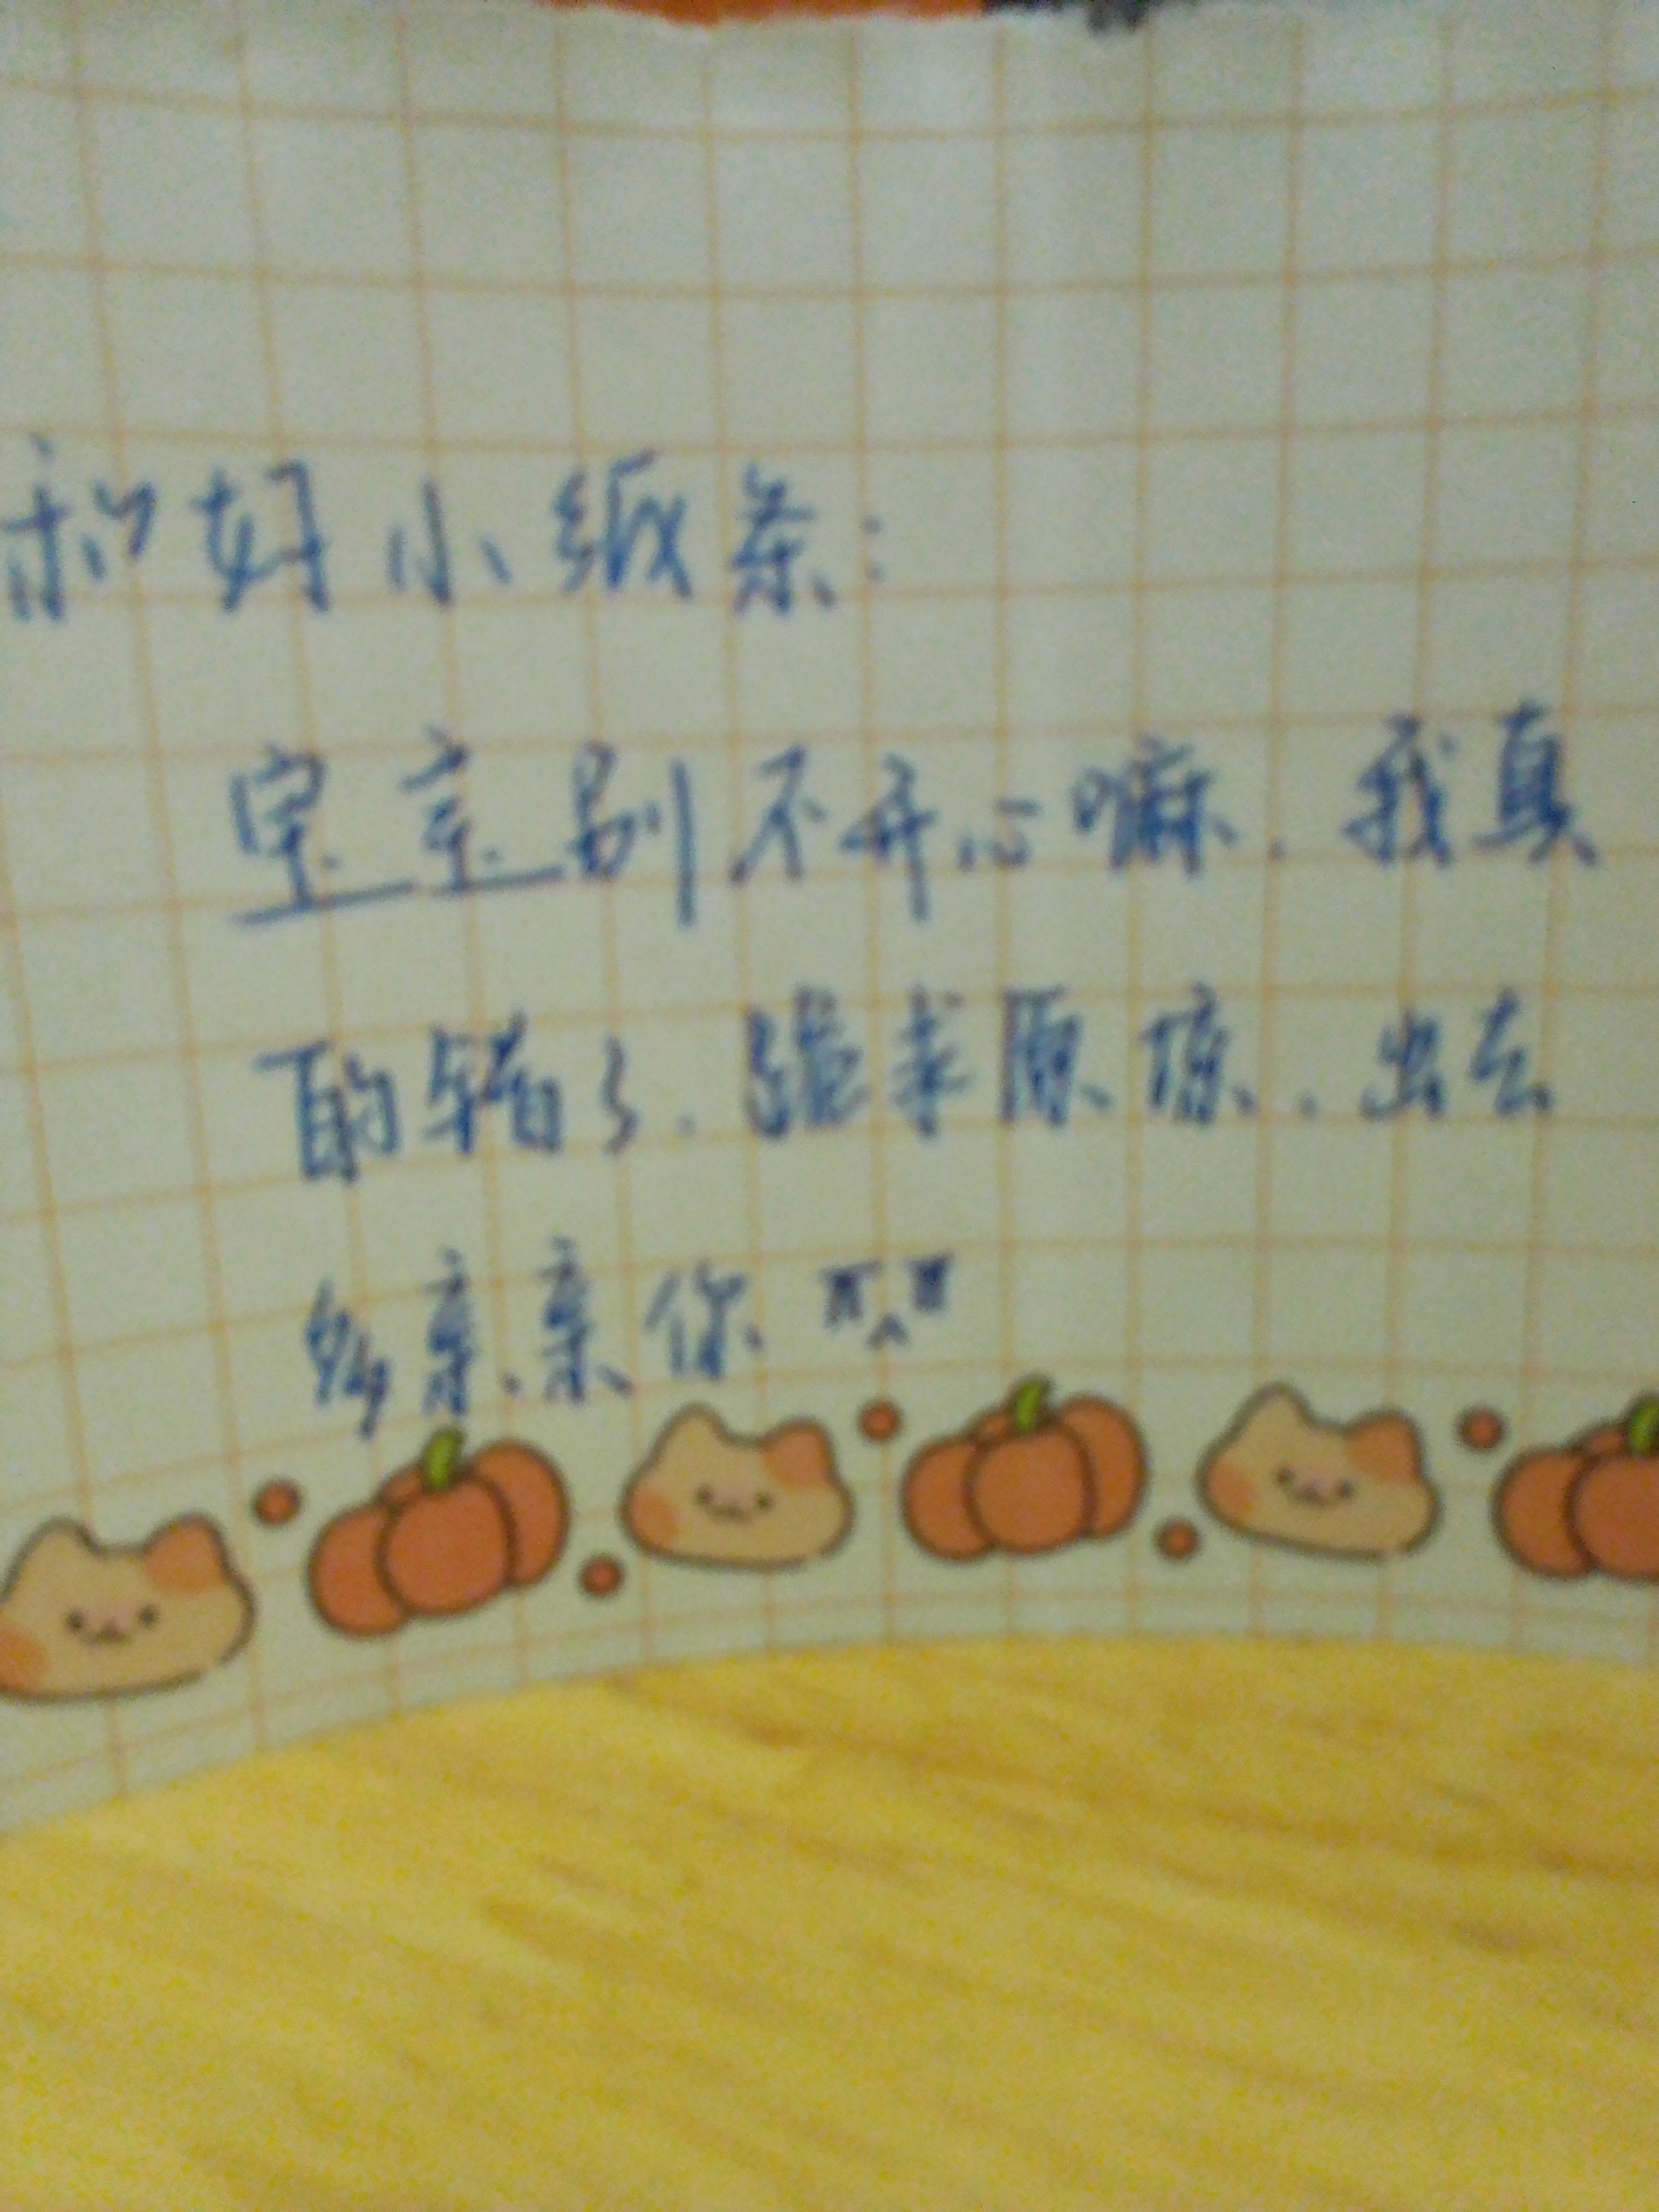 和好小纸条:
宝宝别不开心嘛.我真
的错了.强求原谅.出去
多亲亲你 ㅠ^ㅠ